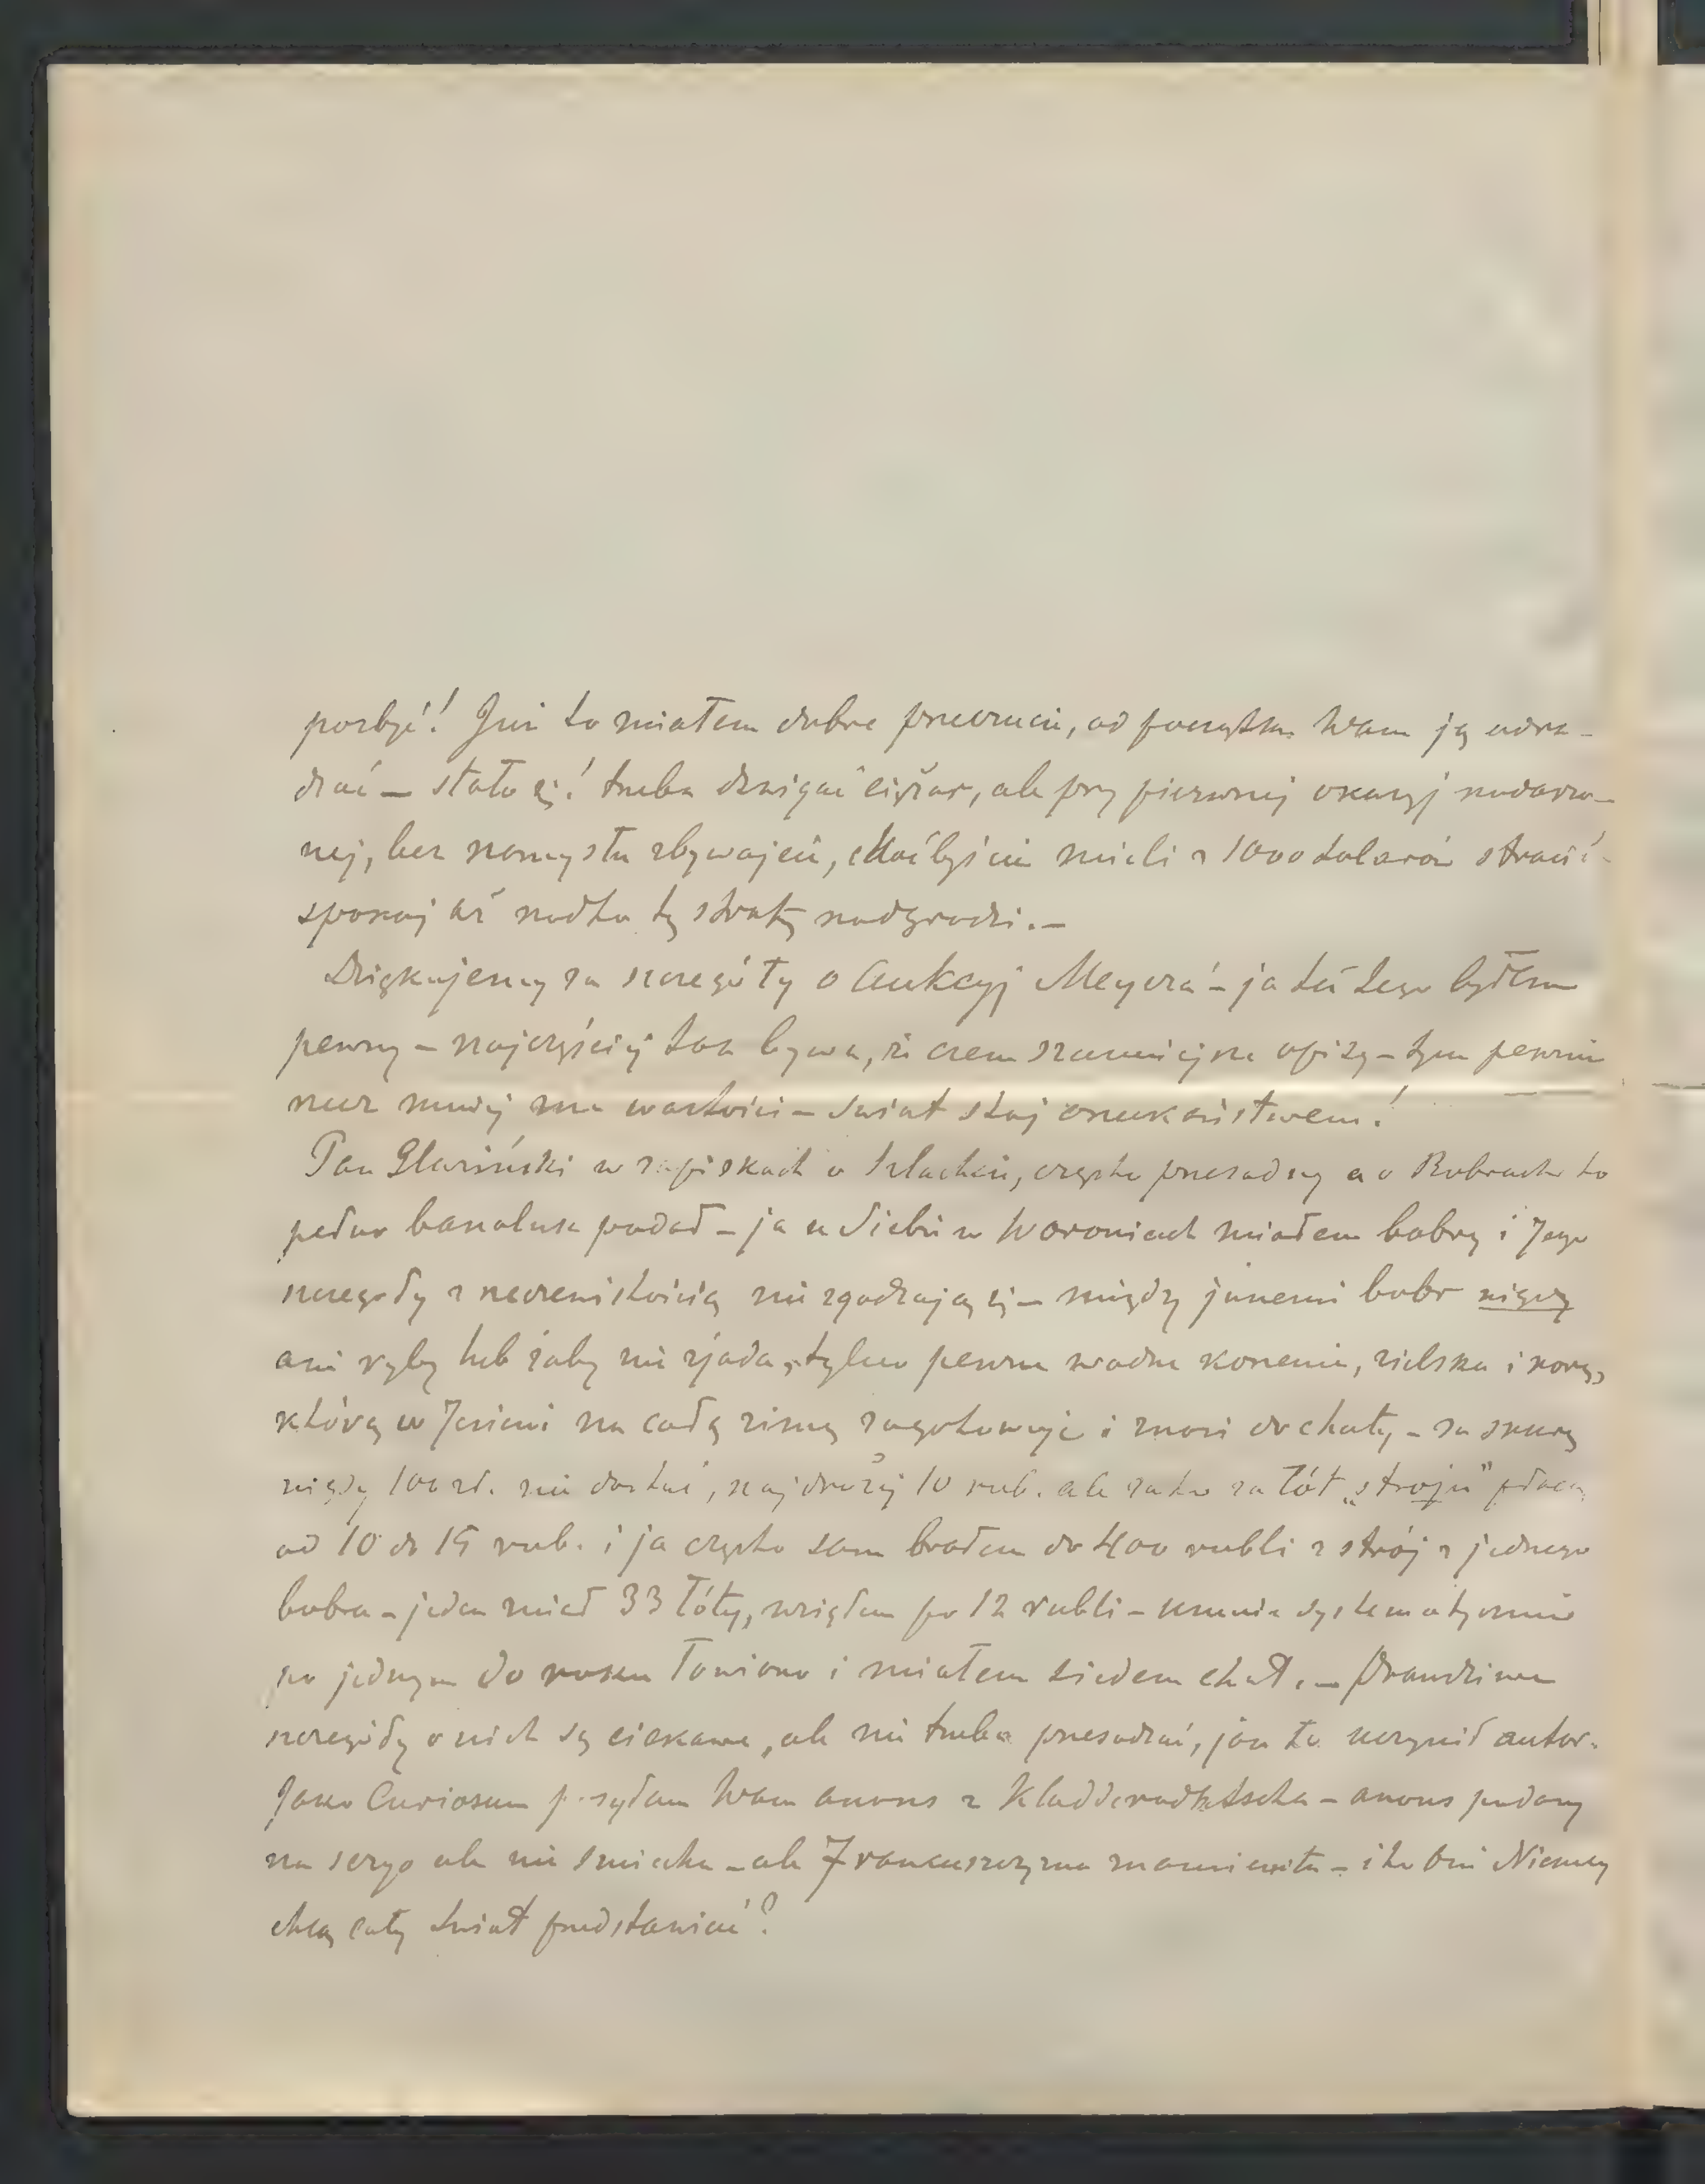 pozbyć! Już to miałem dobre przeczucie, od początku Wam ją odra-
dzać – stało się! trzeba dźwigać ciężar, ale przy pierwszej okazyj nadarzo-
nej, bez namysłu zbywajcie, choćbyście mieli z 1000 dolarów stracić
spokój też nadto tę stratę nadgrodzi. –
Dziękujemy za szczegóły o Aukcyj Meyera – ja też tego byłem
pewny – najczęściej tak bywa, że czem szumniejsze opisy – tym pewnie
rzecz mniej ma wartości – świat stoj oszukaństwem!
Pan Gloziński w zapiskach o Szlachcie, często przesadny a o Bobrach to
pełno banaluk podał – ja u siebie w Woroniach miałem bobry i Jego
szczegóły z rzeczewistością nie zgadzają się – między jinemi bobr nigdy
ani ryby lub żaby nie zjada, tylko pewne wodne korzenie, zielska i korę,
którę w Jesieni na całą zimę zagotowuje i znosi do chaty, – za skurę
nigdy 100 zł. nie dostać, najdrożej 10 rub. ale zato za łót „stroju" płacą
od 10 do 15 rub. i ja często sam brałem do 400 rubli z strój z jednego
bobra – jeden miał 33 łóty, wziąłem po 12 rubli – u mnie systematycznie
po jednym do roku łowiono i miałem siedem chat. – Prawdziwe
szczegóły o nich są ciekawe, ale nie trzeba przesadzać, jak to uczynił autor.
Jako Curiosum posyłam Wam anons z Kladderadatscha – anons podany
na seryo ale nie śmiechu – ale Francuszczyzna znamienita – i to ōni Niemcy
chcą cały świat przedstawiać?